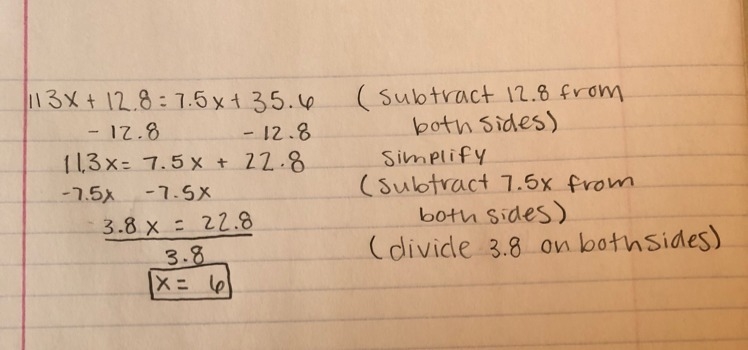 113x + 12.8 = 7.5x + 35.6 (subtract 12.8 from
- 12.8 - 12.8 both sides)
11.3x = 7.5x + 22.8 simplify
-7.5x -7.5x (subtract 7.5x from
3.8x = 22.8 both sides)
3.8 (divide 3.8 on both sides)
x = 6